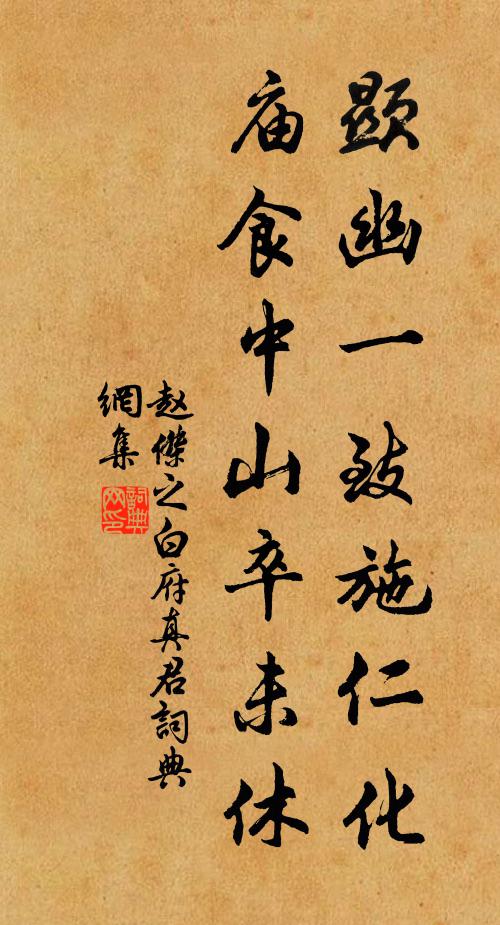 顯幽一致施仁化
庙食中山卒未休
赵傑之白府真君詞典
網集
詞典
网印